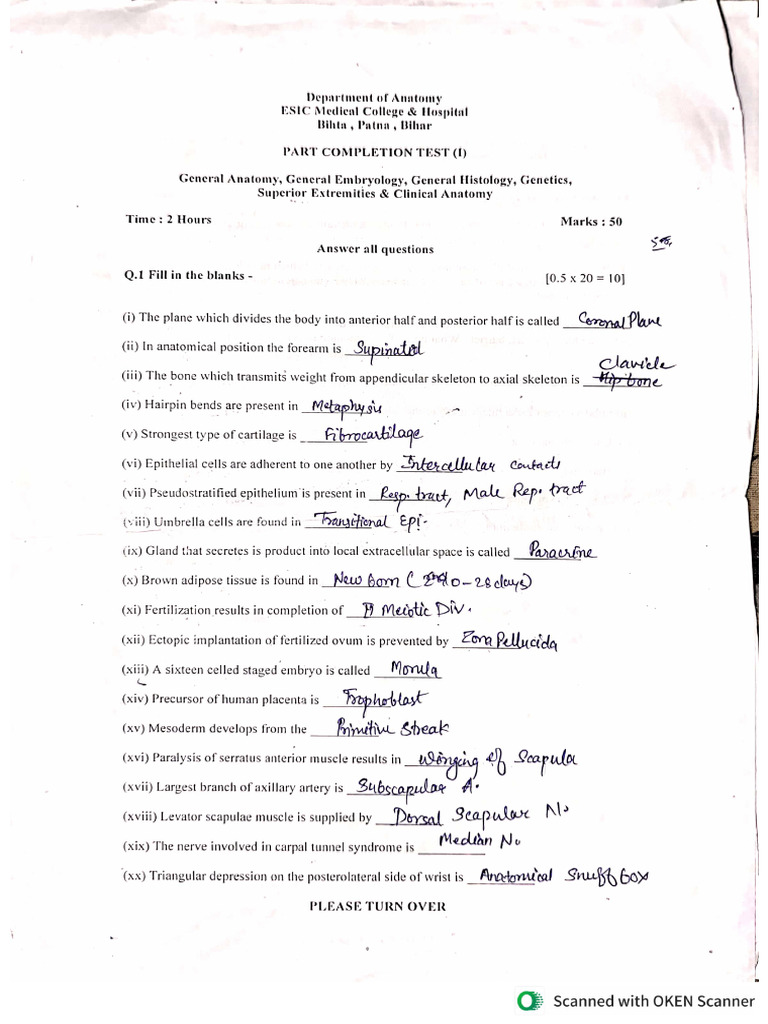 Department of Anatomy
ESIC Medical College & Hospital
Bihta , Patna , Bihar
PART COMPLETION TEST (I)
General Anatomy, General Embryology, General Histology, Genetics,
Superior Extremities & Clinical Anatomy
Time : 2 Hours Marks : 50
Answer all questions
Q.1 Fill in the blanks - [0.5 x 20 = 10]
(i) The plane which divides the body into anterior half and posterior half is called Coronal Plane
(ii) In anatomical position the forearm is Supinated
Clavicle
(iii) The bone which transmits weight from appendicular skeleton to axial skeleton is Hip bone
(iv) Hairpin bends are present in Metaphysis
(v) Strongest type of cartilage is Fibrocartilage
(vi) Epithelial cells are adherent to one another by Intercellular contacts
(vii) Pseudostratified epithelium is present in Resp. tract, Male Rep. tract
(viii) Umbrella cells are found in Transitional Epi.
(ix) Gland that secretes is product into local extracellular space is called Paracrine
(x) Brown adipose tissue is found in New Born ( 0-28 days)
(xi) Fertilization results in completion of II Meiotic Div.
(xii) Ectopic implantation of fertilized ovum is prevented by Zona Pellucida
(xiii) A sixteen celled staged embryo is called Morula
(xiv) Precursor of human placenta is Trophoblast
(xv) Mesoderm develops from the Primitive Streak
(xvi) Paralysis of serratus anterior muscle results in Winging of Scapula
(xvii) Largest branch of axillary artery is Subscapular A.
(xviii) Levator scapulae muscle is supplied by Dorsal Scapular N.
(xix) The nerve involved in carpal tunnel syndrome is Median N.
(xx) Triangular depression on the posterolateral side of wrist is Anatomical Snuff box
PLEASE TURN OVER
Scanned with OKEN Scanner